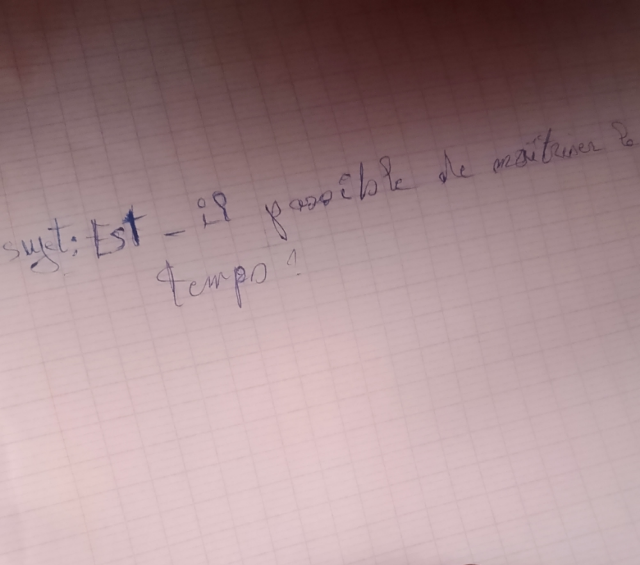 sujet: Est-il possible de maîtriser le
temps?